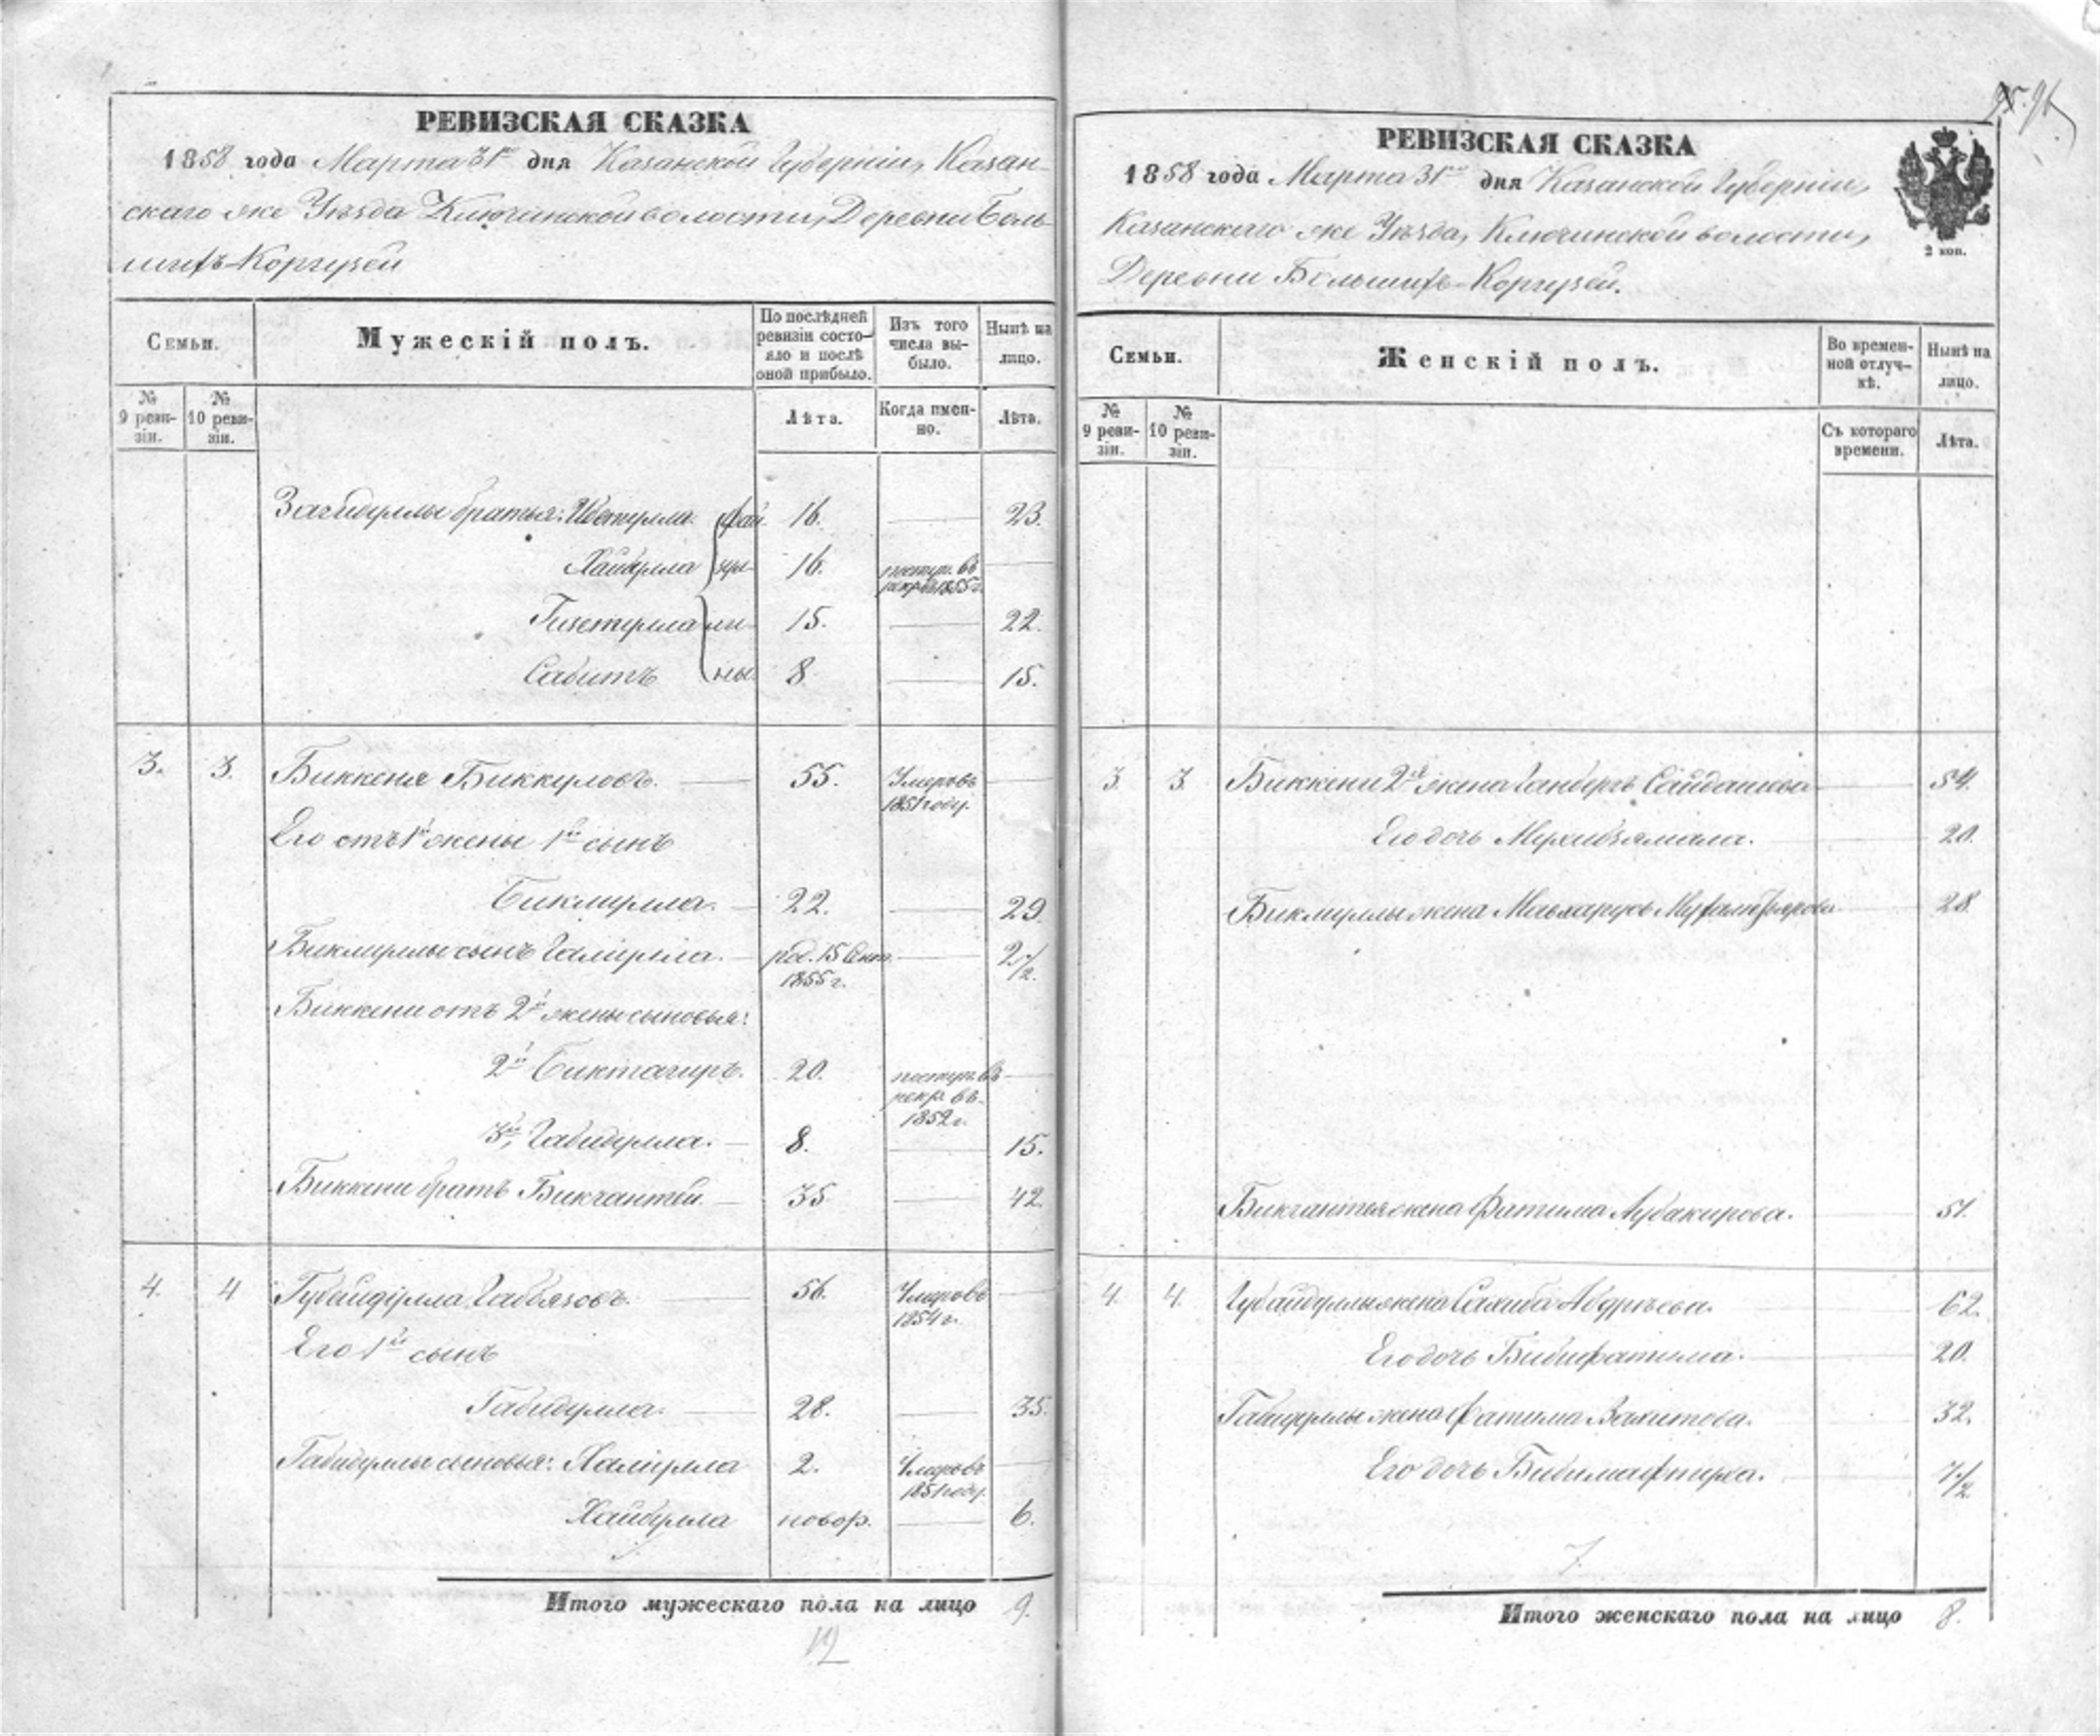 РЕВИЗСКАЯ СКАЗКА
1858 года Марта 31го дня Казанской Губерніи, Казан-
скаго же Уѣзда Ключинской волости, Деревни Боль-
шихъ-Коргузей
Семьи.
Мужескій полъ.
По послѣдней ревизіи состо-яло и послѣ оной прибыло.
Изъ того числа вы-было.
Нынѣ на лицо.
№ 9 реви-зіи.
№ 10 реви-зіи.
Лѣта.
Когда имен-но.
Лѣта.
Загидуллы братья: 16. 23.
Хайбулла 16. поступ. въ рекруты 1855 г.
15. 22.
Сабитъ 8. 15.
3. 3. Биккеня Биккуловъ. 55. Умеръ въ 1851 году.
Его отъ 1й жены 1й сынъ
Бикмулла. 22. 29.
Бикмуллы сынъ Галiулла. род. 15 Сент. 1855 г. 2 1/2.
Биккени отъ 2й жены сыновья:
2й Биктагиръ. 20. поступ. въ рекр. въ 1852 г.
3й, Габидулла. 8. 15.
Биккени братъ Бикчантей. 35 42.
4. 4 Губайдулла Габбясовъ. 56. Умеръ въ 1854 г.
Его 1й сынъ
Габидулла. 28. 35.
Габидуллы сыновья: Халiулла 2. Умеръ въ 1851 году.
Хайбулла новор. 6.
Итого мужескаго пола на лицо 9.
12
РЕВИЗСКАЯ СКАЗКА
1858 года Марта 31го дня Казанской Губерніи,
Казанскаго же Уѣзда, Ключинской волости,
Деревни Большихъ-Коргузей.
2 коп.
Семьи.
Женскій полъ.
Во времен-ной отлуч-кѣ.
Нынѣ на лицо.
№ 9 реви-зіи.
№ 10 реви-зіи.
Съ котораго времени.
Лѣта.
3. 3. Биккени 2я жена Сайдашева 54.
Его дочь Мухибзямала. 20.
Бикмуллы жена 28.
Бикчантея жена Фатима Абубакирова. 51.
4. 4. Губайдуллы жена Сахиба 62.
Его дочь Бибифатима. 20.
Габидуллы жена Фатима Вахитова. 32.
Его дочь 7 1/2.
7.
Итого женскаго пола на лицо 8.